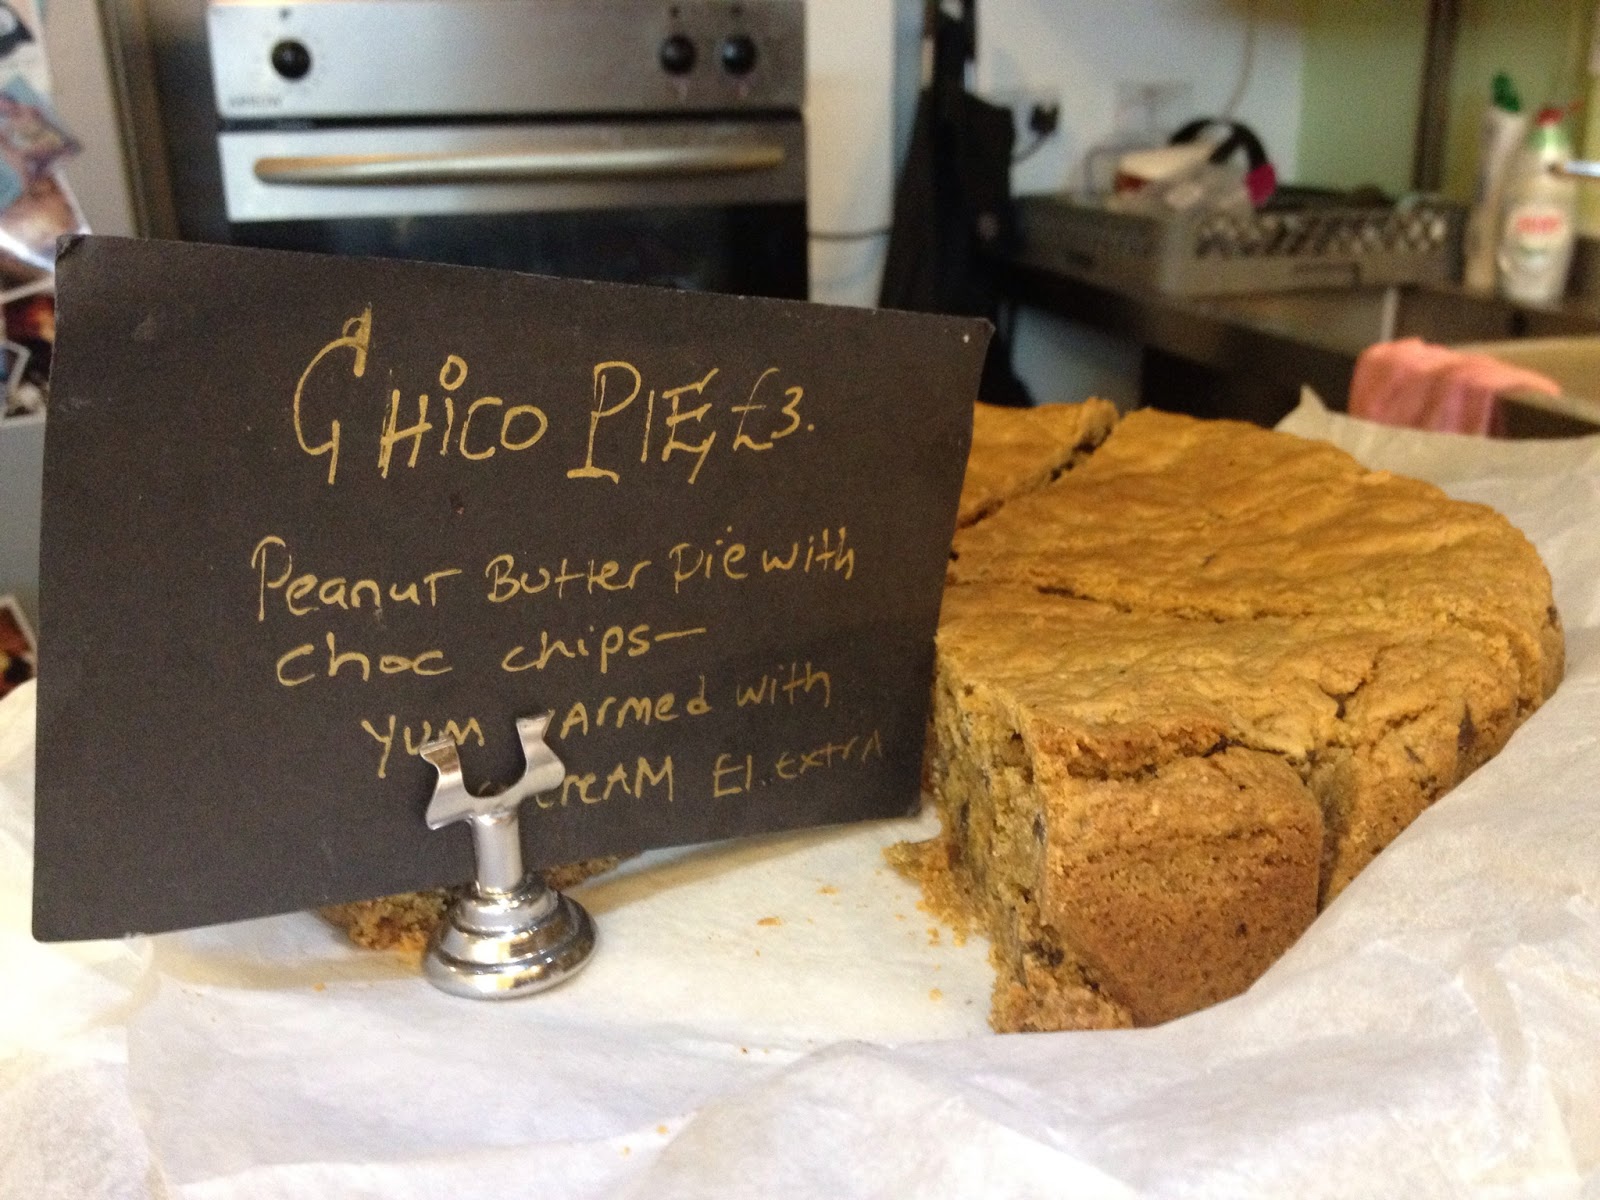 CHiCO PIE £3.
Peanut Butter pie with
choc chips—
Yum warmed with
cream £1. extra